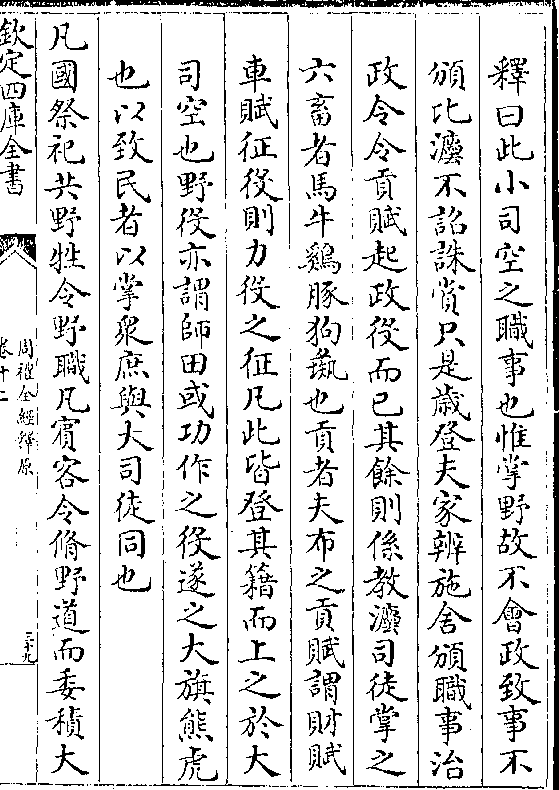 釋曰此小司空之職事也惟掌野故不會政致事不
頒比灋不詔誅賞只是歳登夫家辨施舍頒職事治
政令令貢賦起政役而已其餘則係教灋司徒掌之
六畜者馬牛鷄豚狗彘也貢者夫布之貢賦謂財賦
車賦征役則力役之征凡此皆登其籍而上之於大
司空也野役亦謂師田或功作之役遂之大旗熊虎
也以致民者以掌衆庶與大司徒同也
凡國祭祀共野牲令野職凡賓客令脩野道而委積大
欽定四庫全書
周禮全經釋原
卷十二
三十九